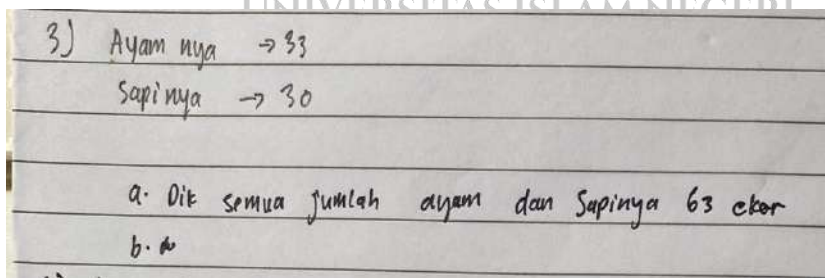 UNIVERSITAS ISLAM NEGERI
3) Ayam nya → 33
Sapi nya → 30
a. Dik semua jumlah ayam dan Sapinya 63 ekor
b.